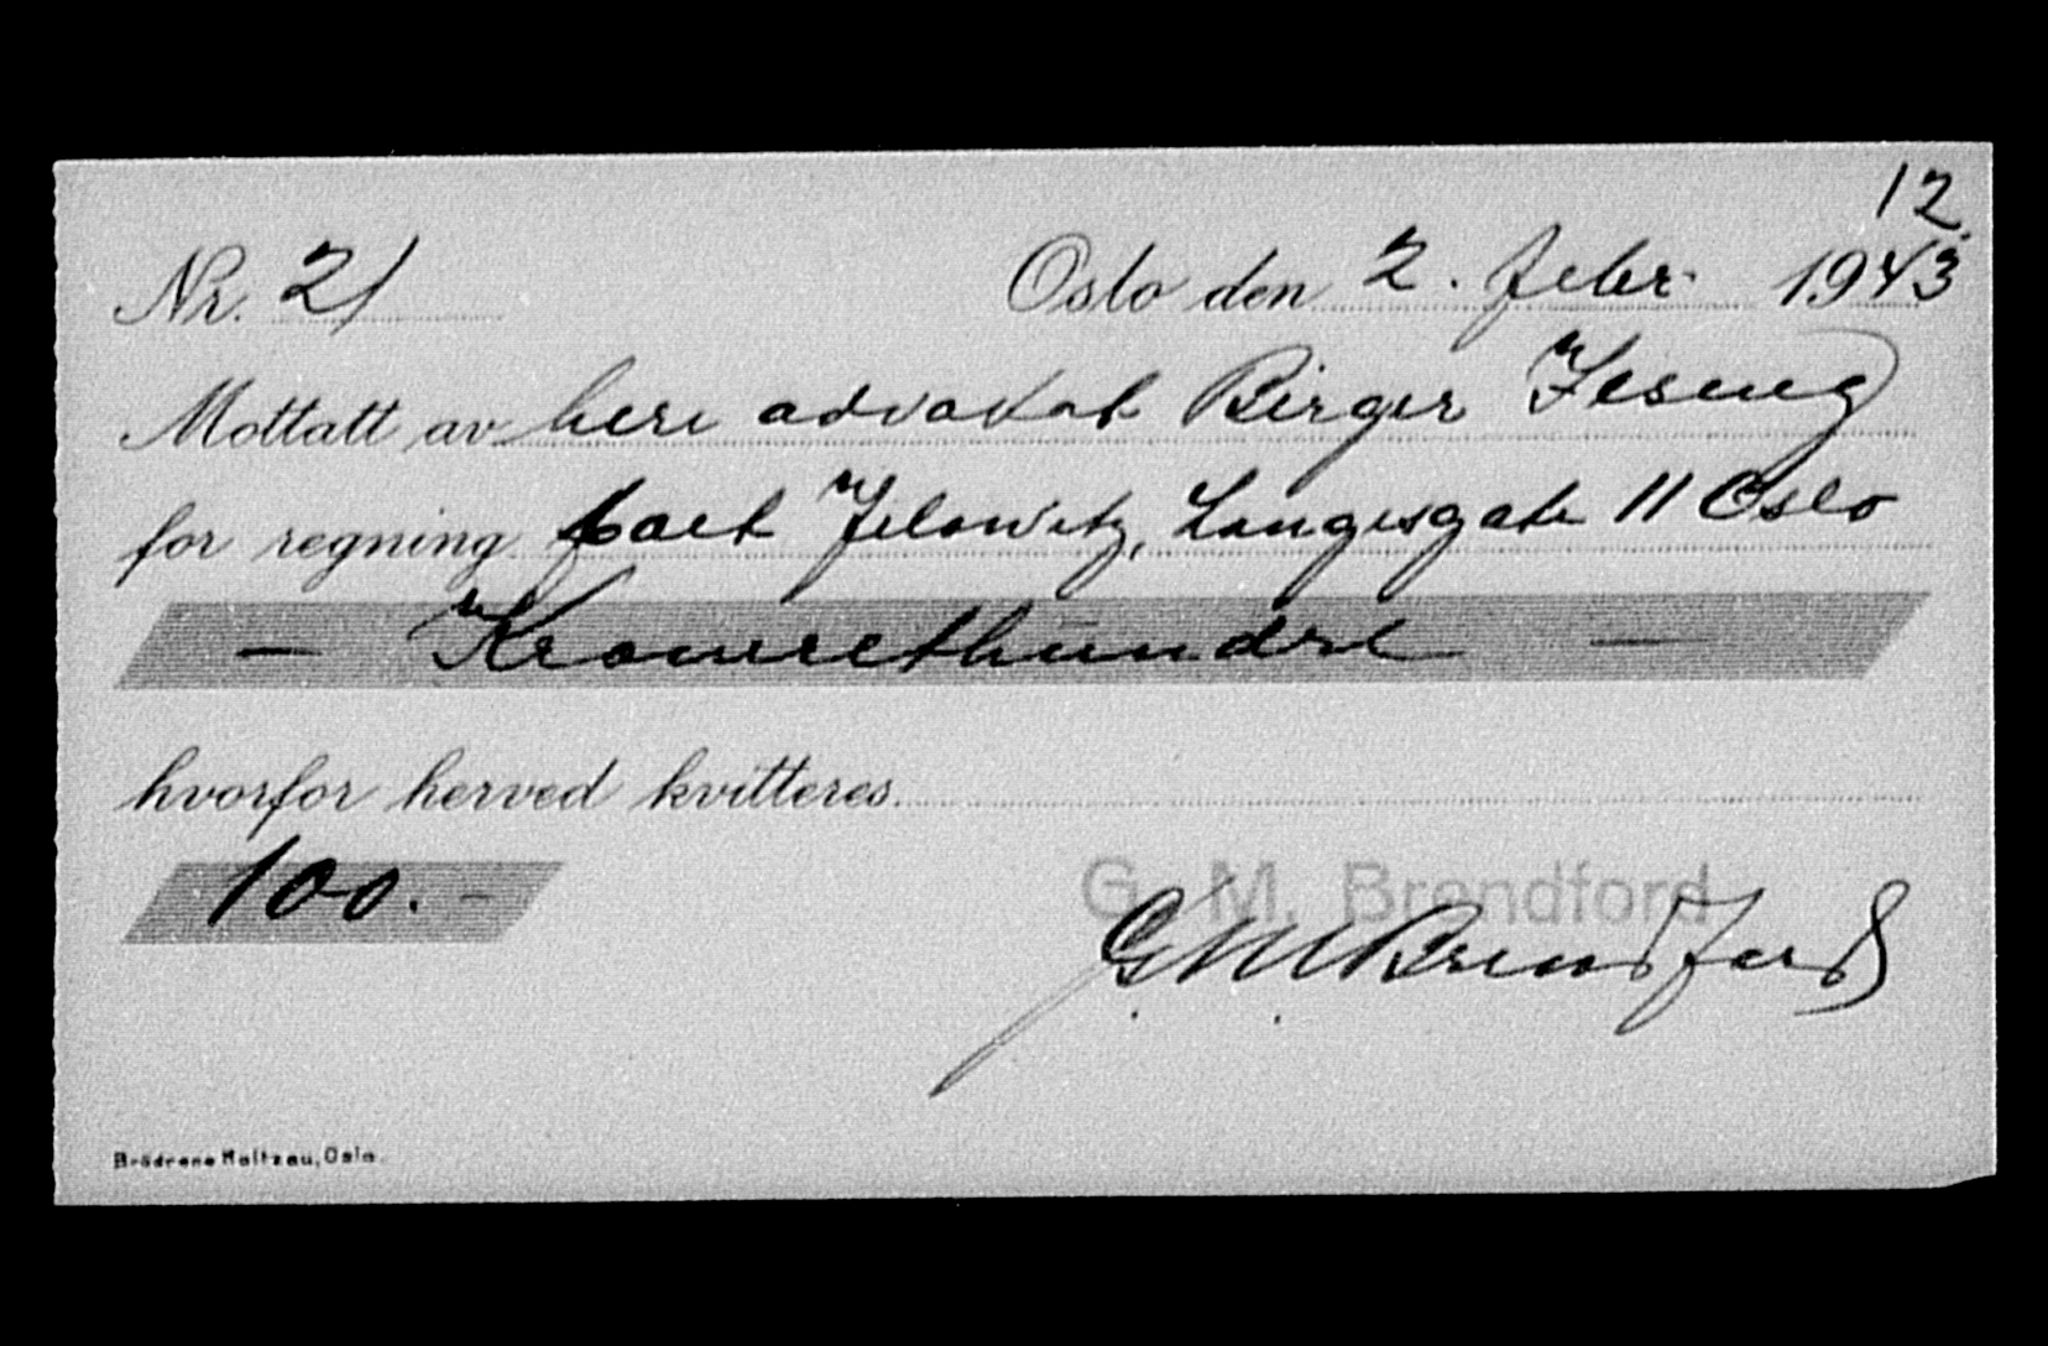 12.
Nr. 21 Oslo den 2. febr. 1943
Mottatt av herr advokat Birger
for regning boet Jelowitz, Langesgate 11 Oslo
— Kronerethundre —
hvorfor herved kvitteres
100.-
G. M. Brandford
G M Brandford
Brödrene Haltzau, Oslo.